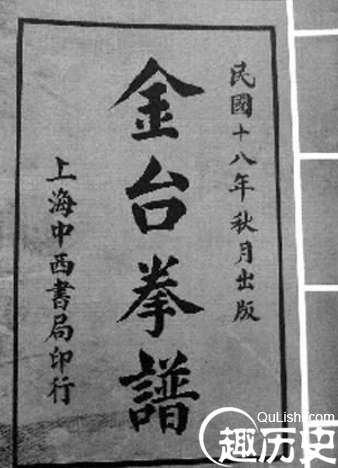 民國十八年秋月出版
金台拳譜
上海中西書局印行
QuLishi.com
趣历史